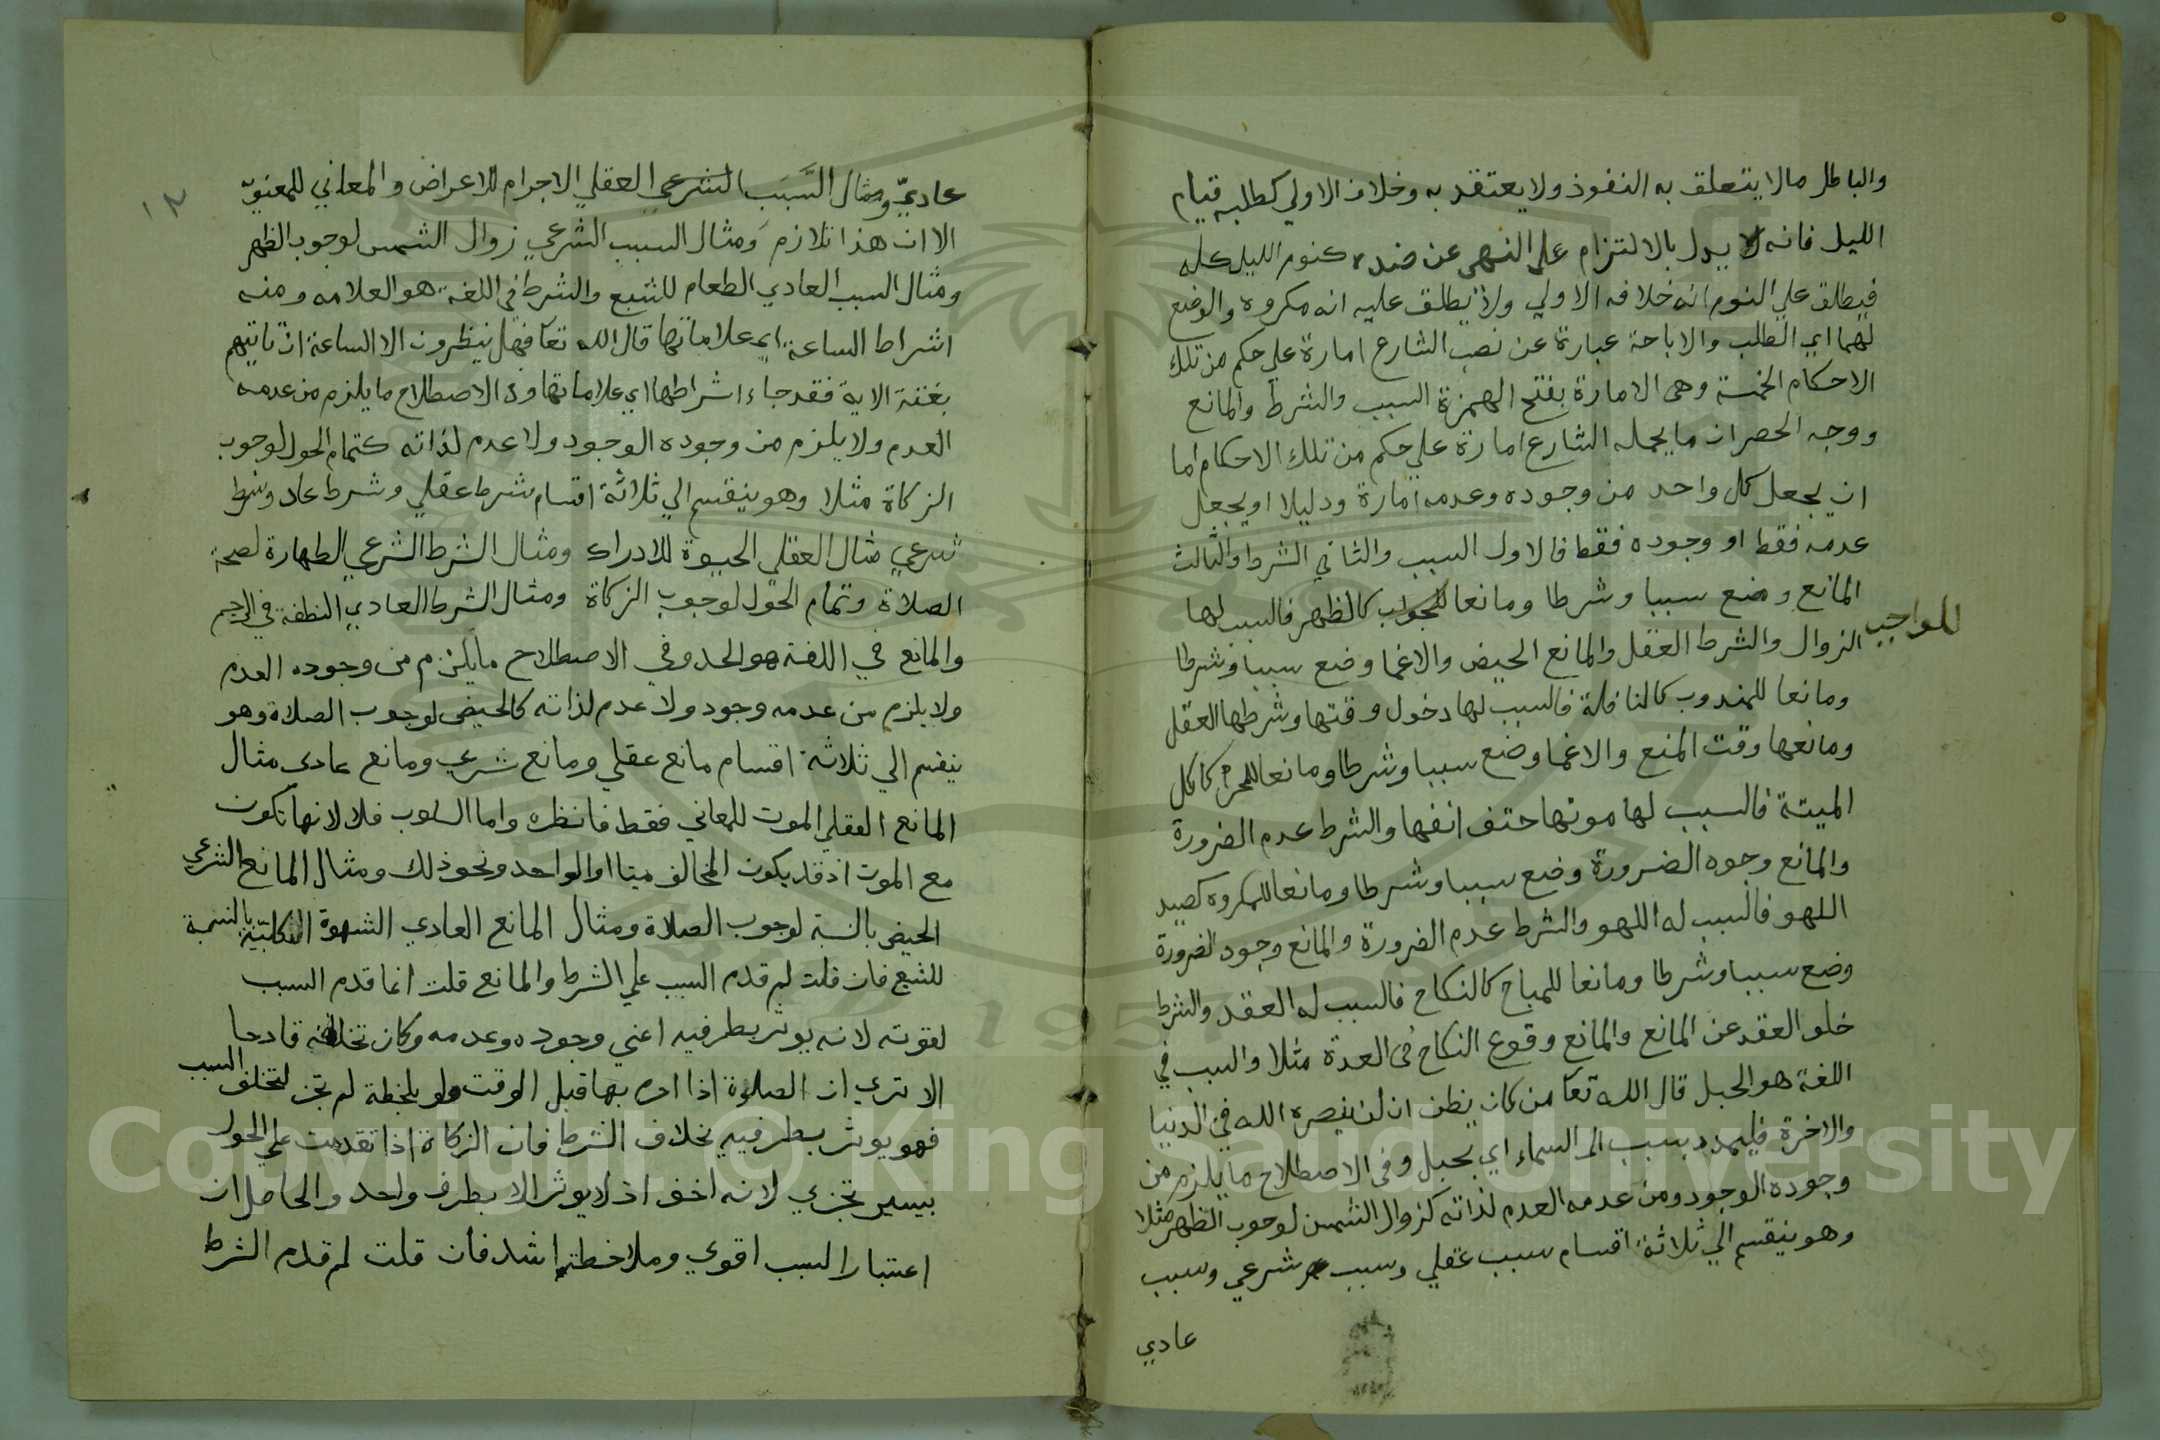 والباطل مالا يتعلق به النفوذ ولا يعتقد به وخلاف الاولي كطلبه قيام
الليل فانه لا يدل بالالتزام علي النهي عن ضده كنوم الليل كله
فيطلق علي النوم انه خلافه الاولي ولا يطلق عليه انه مكروه والوضع
لهما اي الطلب والاباحة عبارة عن نصب الشارع امارة علي حكم من تلك
الاحكام الخمسة وهى الامارة بفتح الهمزة السبب والشرط والمانع
ووجه الحصر ان ما يجعله الشارع امارة علي حكم من تلك الاحكام اما
ان يجعل كل واحد من وجوده وعدمه امارة ودليلا او يجعل
عدمه فقط او وجوده فقط فالاول السبب والثاني الشرط والثالث
المانع وضع سببا وشرطا ومانعا كالظهر فالسبب لها
للواجب
الزوال والشرط العقل والمانع الحيض والاغما وضع سببا وشرطا
ومانعا للمندوب كالنافلة فالسبب لها دخول وقتها وشرطها العقل
ومانعها وقت المنع والاغما وضع سببا وشرطا ومانعا للمحرم كاكل
الميتة فالسبب لها موتها حتف انفها والشرط عدم الضرورة
والمانع وجوه الضرورة وضع سببا وشرطا ومانعا للمكروه كصيد
اللهو فالسبب له اللهو والشرط عدم الضرورة والمانع وجود الضرورة
وضع سببا وشرطا ومانعا للمباح كالنكاح فالسبب له العقد والشرط
خلو العقد عن المانع والمانع وقوع النكاح فى العدة مثلا والسبب في
اللغة هو الحبل قال الله تعا من كان يظن ان لن ينصره الله في الدنيا
والاخرة فليمدد بسبب الى السماء اي بحبل وفى الاصطلاح ما يلزم من
وجوده الوجود ومن عدمه العدم لذاته كزوال الشمس لوجوب الظهر مثلا
وهو ينقسم الي ثلاثة اقسام سبب عقلي وسبب شرعي وسبب
عادي
١٢
عاديّ ومثال السَّبَب الشرعي العقلي الاجرام للاعراض والمعاني للمعنويّ
الا ان هذا تلازم ومثال السبب الشرعي زوال الشمس لوجوب الظهر
ومثال السبب العادي الطعام للشبع والشرط فى اللغة هو العلامه ومنه
اشراط الساعة اي علاماتها قال الله تعا فهل ينظرون الا الساعة ان تاتيهم
بغتة الاية فقد جاء اشراطها اي علاماتها وفى الاصطلاح ما يلزم من عدمه
العدم ولا يلزم من وجوده الوجود ولا عدم لذاته كتمام الحول لوجوب
الزكاة مثلا وهو ينقسم الي ثلاثة اقسام شرط عقلي وشرط عاد وشرط
شرعي مثال العقلي الحيوة للادراك ومثال الشرط الشرعي الطهارة لصحة
الصلاة وتمام الحول لوجوب الزكاة ومثال الشرط العادي النطفة في الرحم
والمانع في اللغة هو الحد وفي الاصطلاح ما يلزم من وجوده العدم
ولا يلزم من عدمه وجود ولا عدم لذاته كالحيض لوجوب الصلاة وهو
ينقسم الي ثلاثة اقسام مانع عقلي ومانع شرعي ومانع عادى مثال
المانع العقلي الموت للمعاني فقط فانظره واما السلوب فلا لانها تكون
مع الموت اذ قد يكون المخالف ميتا او الواحد ونحو ذلك ومثال المانع الشرعي
الحيض بالنسبة لوجوب الصلاة ومثال المانع العادي الشهوة الكلبية بالنسبة
للشبع فان قلت لم قدم السبب علي الشرط والمانع قلت انما قدم السبب
لقوته لانه يوثر بطرفيه اعني وجوده وعدمه وكان تخلفه قادحا
الا تري ان الصلوة اذا اتى بها قبل الوقت ولو بلحظة لم تجز لتخلف السبب
فهو يوثر بطرفيه بخلاف الشرط فان الزكاة اذا تقدمت علي الحول
بيسير تجزي لانه اخف اذ لا يوثر الا بطرف واحد والحاصل ان
اعتبار السبب اقوي وملاحظته اشد فان قلت لم قدم الشرط
Copyright © King Saud University
1957